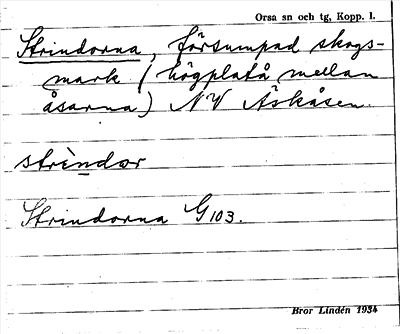 Orsa sn och tg, Kopp. l.
Strindorna, försumpad skogs-
mark (högplatå mellan
åsarna) NV Åskåsen.
strèndor
Strindorna G103.
Bror Lindén 1934